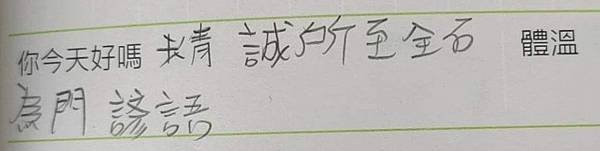 你今天好嗎 精誠所至全石 體溫
為門 諺語